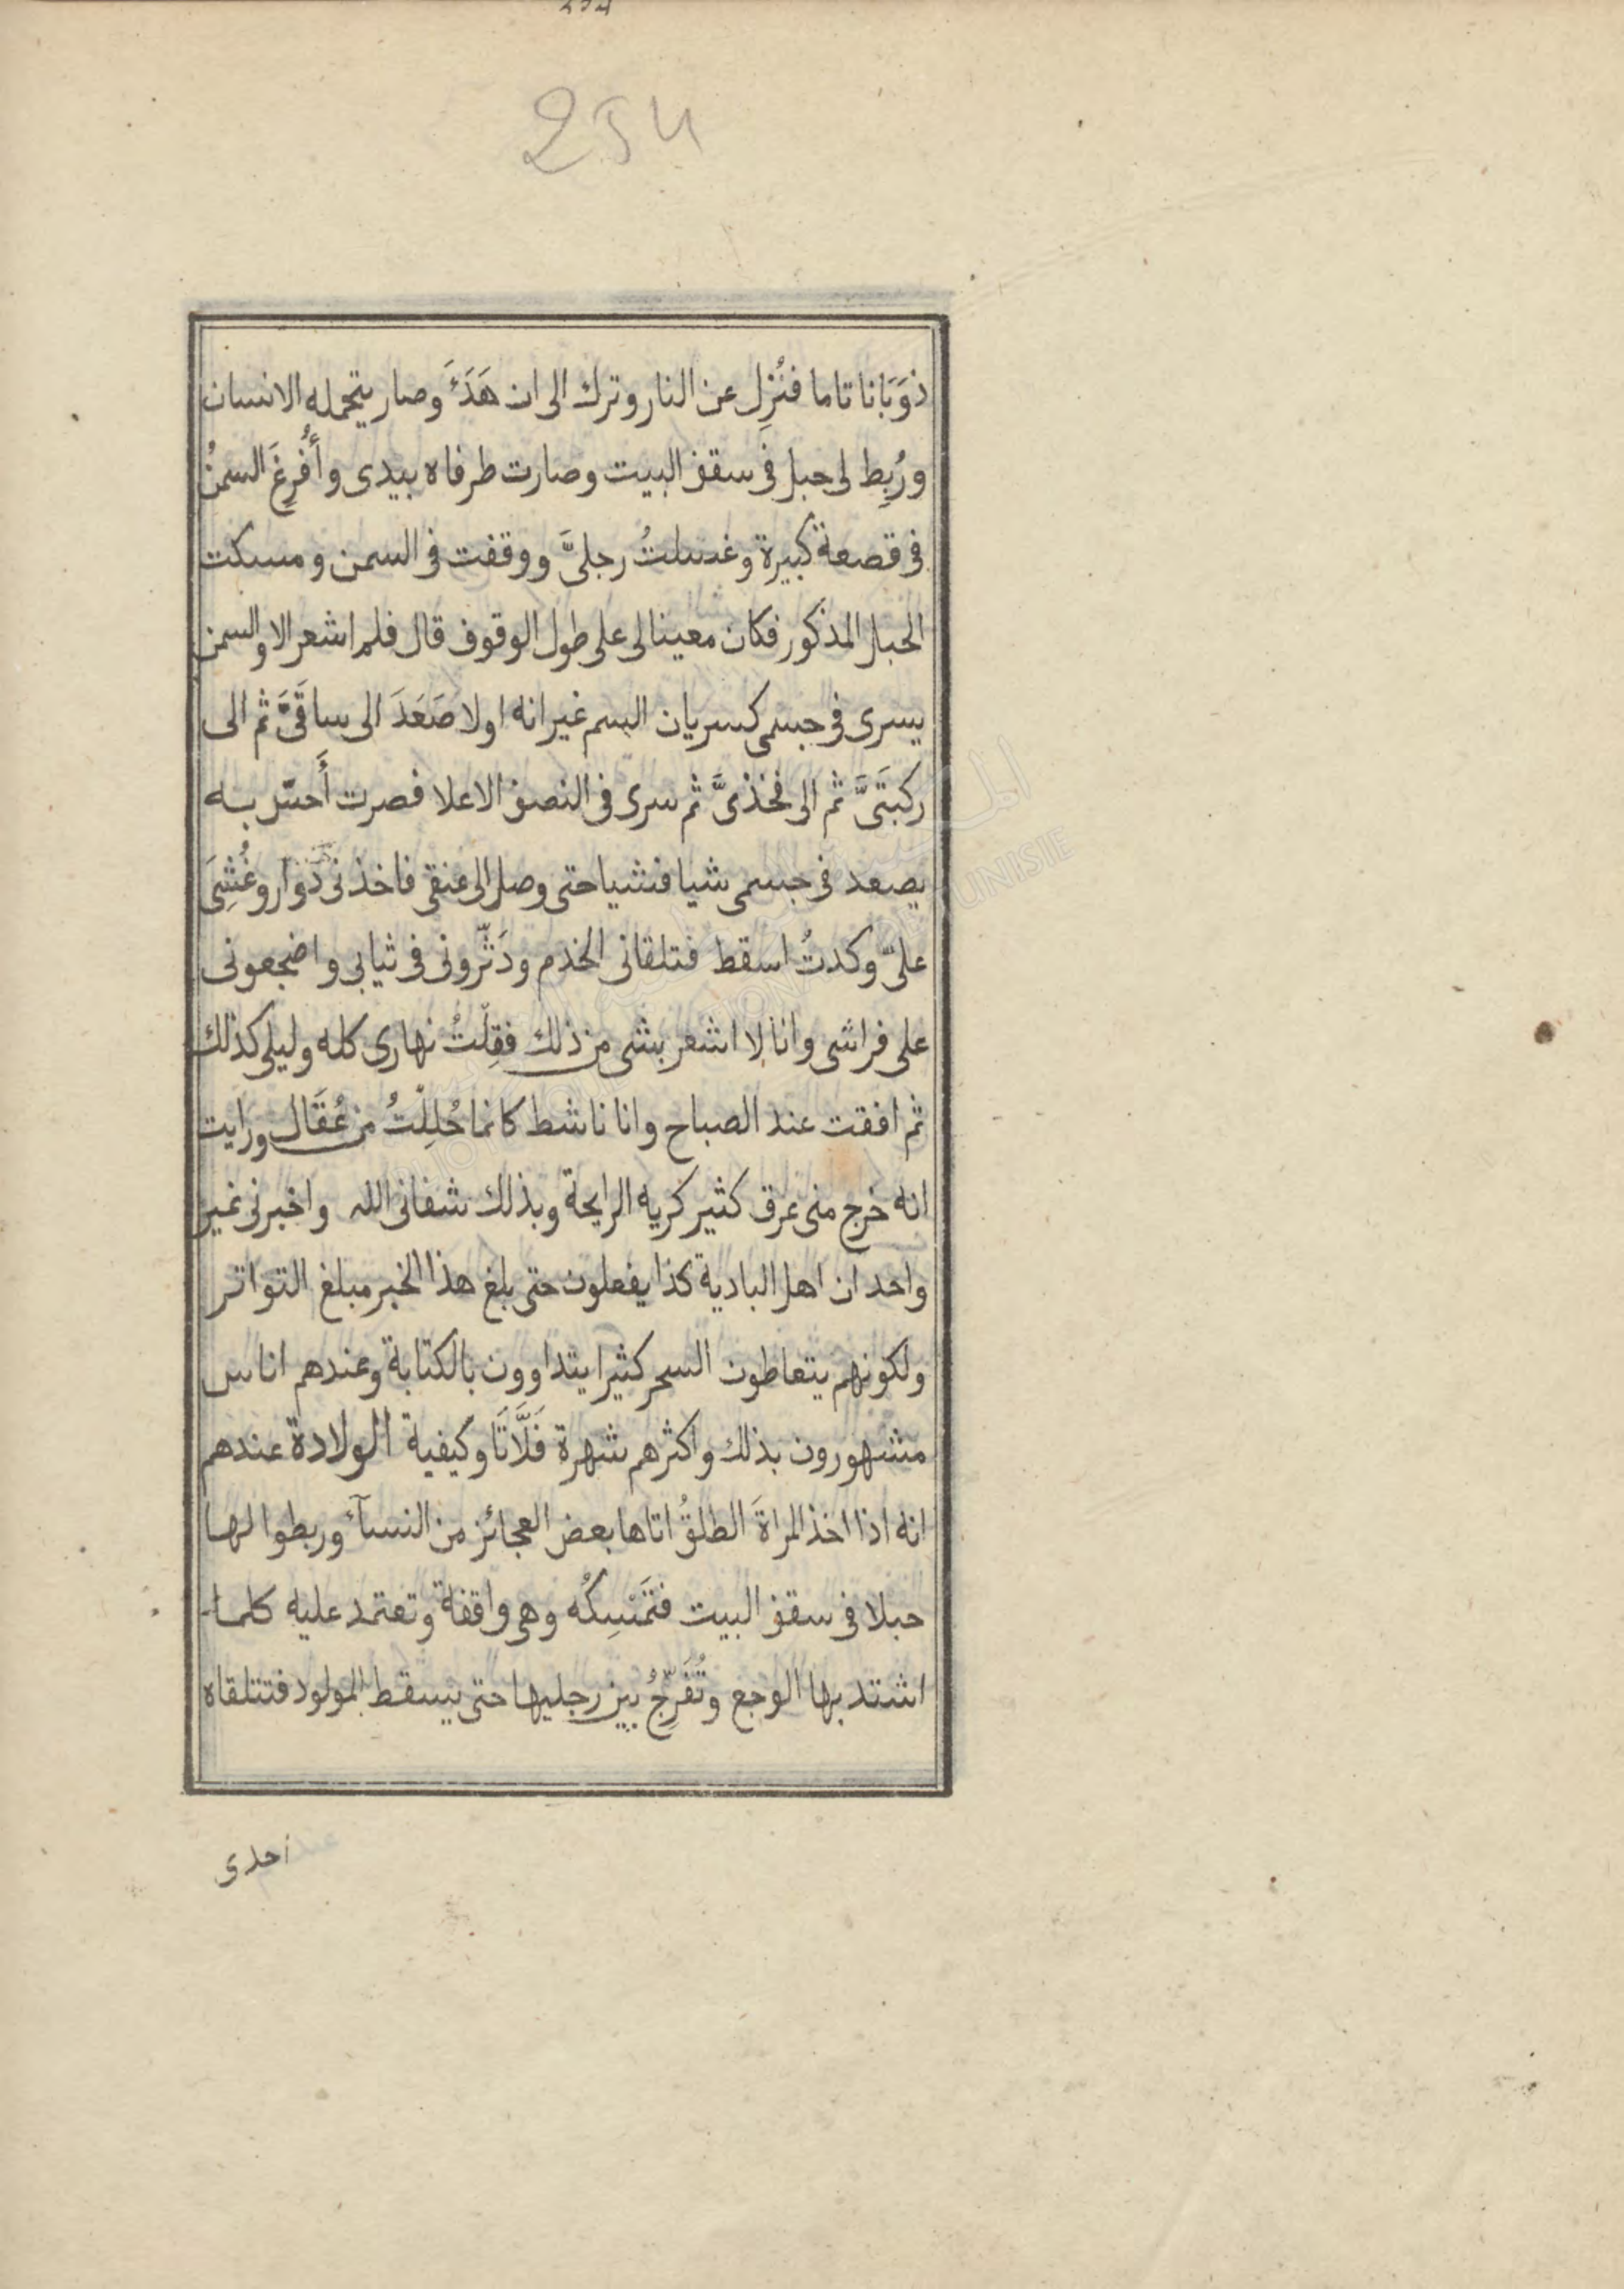 254
ذوَبَانا تاما فنُزِل عن النار وترك الى ان هَدَءَ وصار يتحمله الانسان
ورُبِط لى حبل فى سقف البيت وصارت طرفاه بيدى وأُفرِغَ السمنُ
فى قصعة كبيرة وغسلتُ رجليَّ ووقفت فى السمن ومسكت
الحبل المذكور فكان معينا لى على طول الوقوف قال فلم اشعر الا والسمن
يسرى فى جسمى كسريان السم غير انه اولا صَعَدَ الى ساقَيَّ ثم الى
ركبتَيَّ ثم الى فخذيَّ ثم سرى فى النصف الاعلا فصرت أَحسّ به
يصعد فى جسمى شيا فشيا حتى وصل الى عنقى فاخذنى دُوَار وغُشِىَ
علىّ وكدتُ اسقط فتلقانى الخدم ودَثّرونى فى ثيابى واضجعونى
على فراشى وانا لا اشعر بشى من ذلك فقِلْتُ نهارى كله وليلى كذلك
ثم افقت عند الصباح وانا ناشط كانما حُلِلْتُ من عُقَال ورايت
انه خرج منى عرق كثير كريه الرايحة وبذلك شفانى الله واخبرنى غير
واحد ان اهل البادية كذا يفعلون حتى بلغ هذا الخبر مبلغ التواتر
ولكونهم يتعاطون السحر كثيرا يتداوون بالكتابة وعندهم اناس
مشهورون بذلك واكثرهم شهرة فَلَّاتَا وكيفية الولادة عندهم
انه اذا اخذ المراةَ الطلقُ اتاها بعض العجائز من النسآء وربطوا لها
حبلا فى سقف البيت فتَمْسِكُه وهى واقفة وتعتمد عليه كلما
اشتد بها الوجع وتُفَرِّجُ بين رجليها حتى يسقط المولود فتتلقاه
احدى